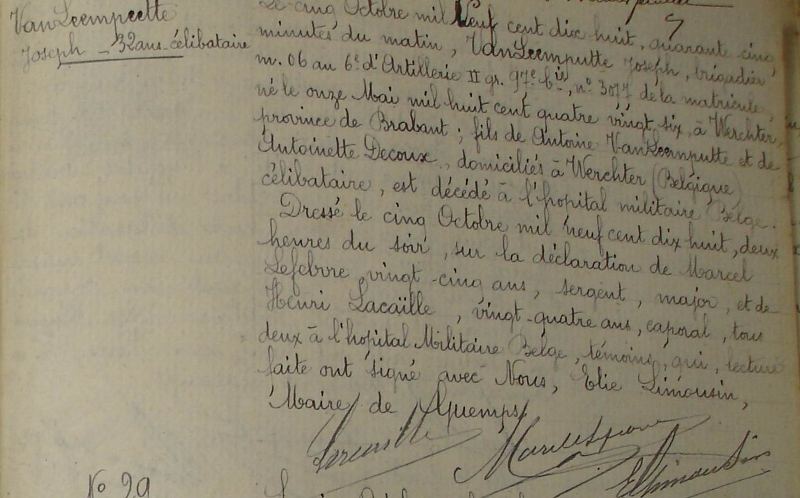 VanLeempeutte
Joseph _ 32 ans _ célibataire
Le cinq Octobre mil Neuf cent dix huit, quarante cinq
minutes du matin, VanLeemputte Joseph, brigadier
m. 06 au 6e d'Artillerie II gr. 97e bis, no 3077 de la matricule,
né le onze Mai mil huit cent quatre vingt six, à Werchter,
province de Brabant ; fils de Antoine VanLeemputte et de
Antoinette Decoux, domiciliés à Werchter (Belgique
célibataire, est décédé à l'hopital militaire Belge.
Dressé le cinq Octobre mil neuf cent dix huit, deux
heures du soir, sur la déclaration de Marcel
Lefebvre vingt-cinq ans, sergent, major, et de
Henri Lacaïlle, vingt-quatre ans, caporal, tous
deux à l'hopital Militaire Belge, témoins, qui, lecture
faite ont signé avec Nous, Elie Limousin,
Maire de Guemps,
ELimousin
No 29